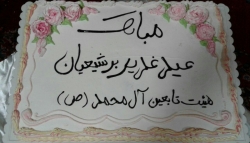 مبارک
عید غدیر بر شیعیان
هیئت تابعین آل محمد (ص)